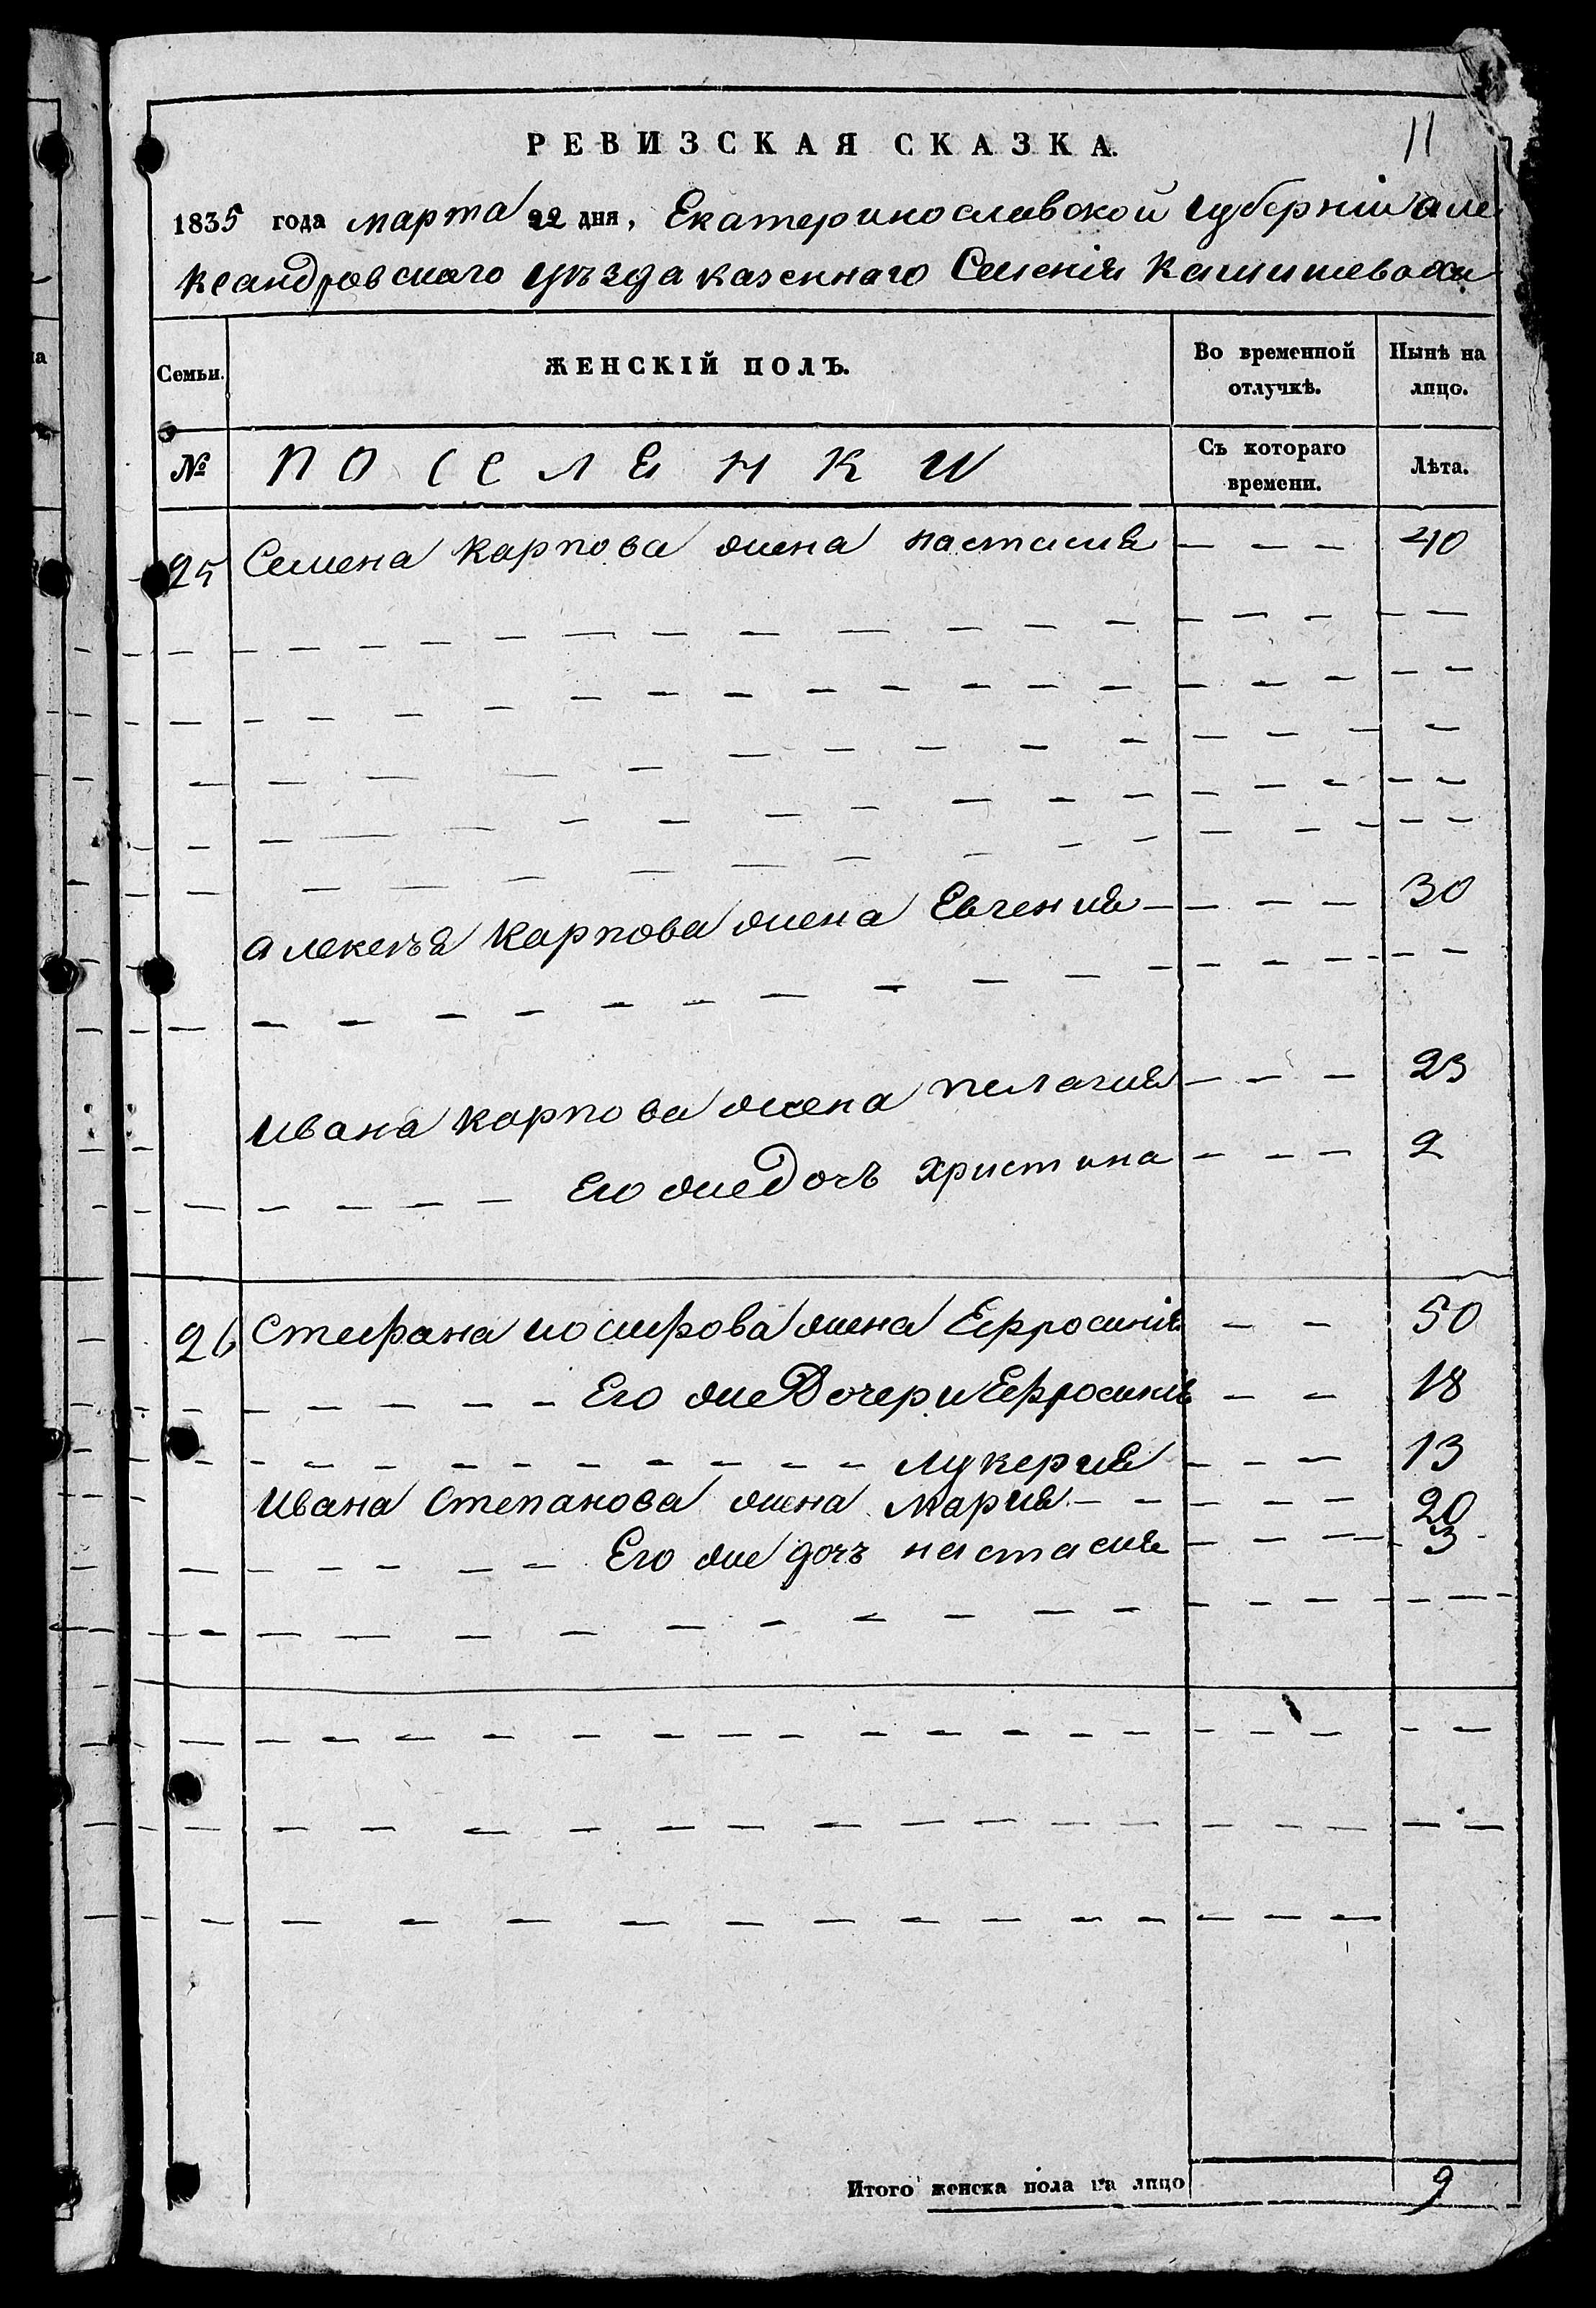 11
РЕВИЗСКАЯ СКАЗКА.
1835 года марта 22 дня, Екатеринославской губерніи але
ксандровскаго уѣзда казеннаго Селенія Камишевахи
Семьи. ЖЕНСКІЙ ПОЛЪ. Во временной отлучкѣ. Нынѣ на лицо.
№ ПОСЕЛЕНКИ Съ котораго времени. Лѣта.
25 Семена Карпова жена настасия — — — 40
алексѣя Карпова жена Евгения — — — 30
Ивана Карпова жена пелагия — — — 23
Его же Дочь христина — — — 2
26 Стефана иосифова жена Ефросиния — — 50
Его же Дочери Ефросиния — — 18
лукерия — — — 13
Ивана Степанова жена Мария — — — 20
Его же дочь настасия — — — 3
Итого женска пола на лицо 9